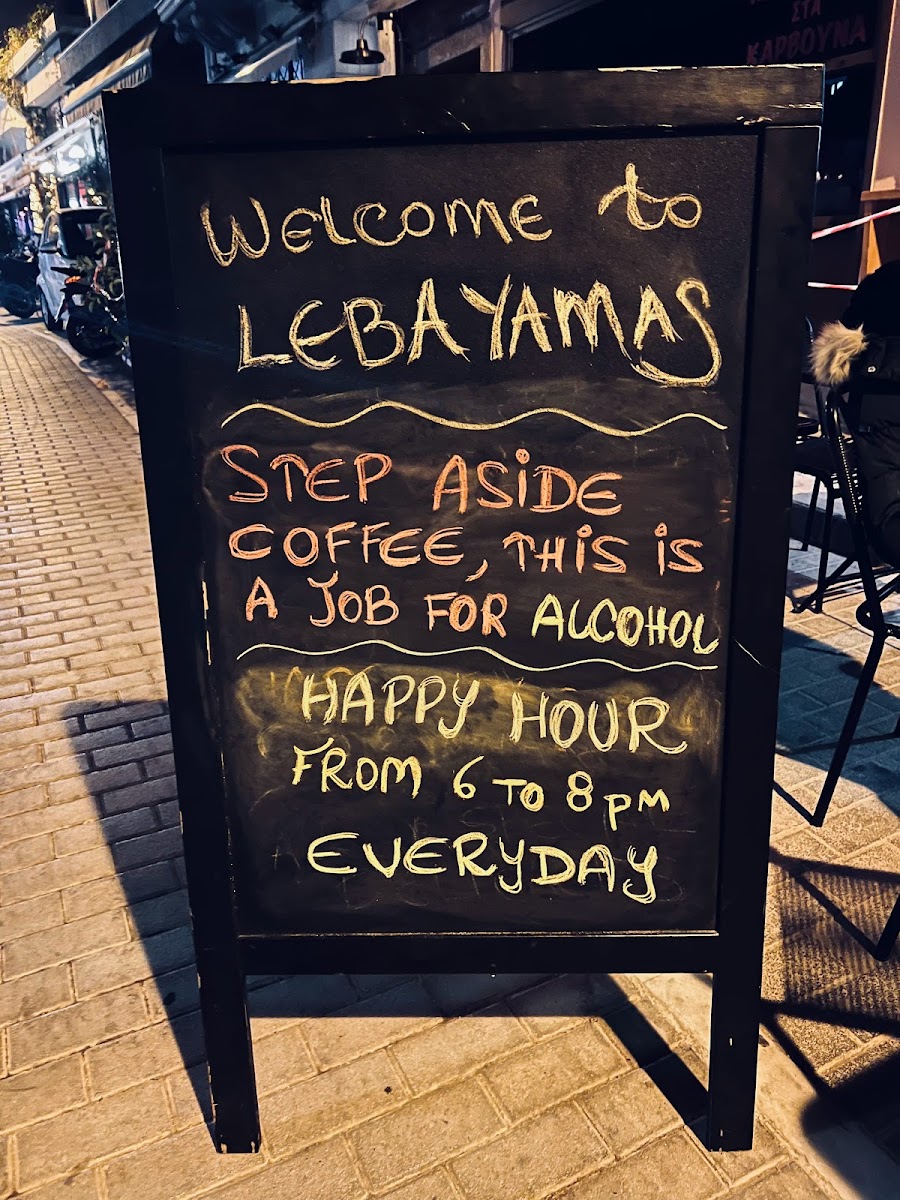 ΣΤΑ
ΚΑΡΒΟΥΝΑ
WELCOME to
LEBAYAMAS
STEP ASIDE
COFFEE, THIS IS
A JOB FOR ALCOHOL
HAPPY HOUR
FROM 6 TO 8 PM
EVERYDAY